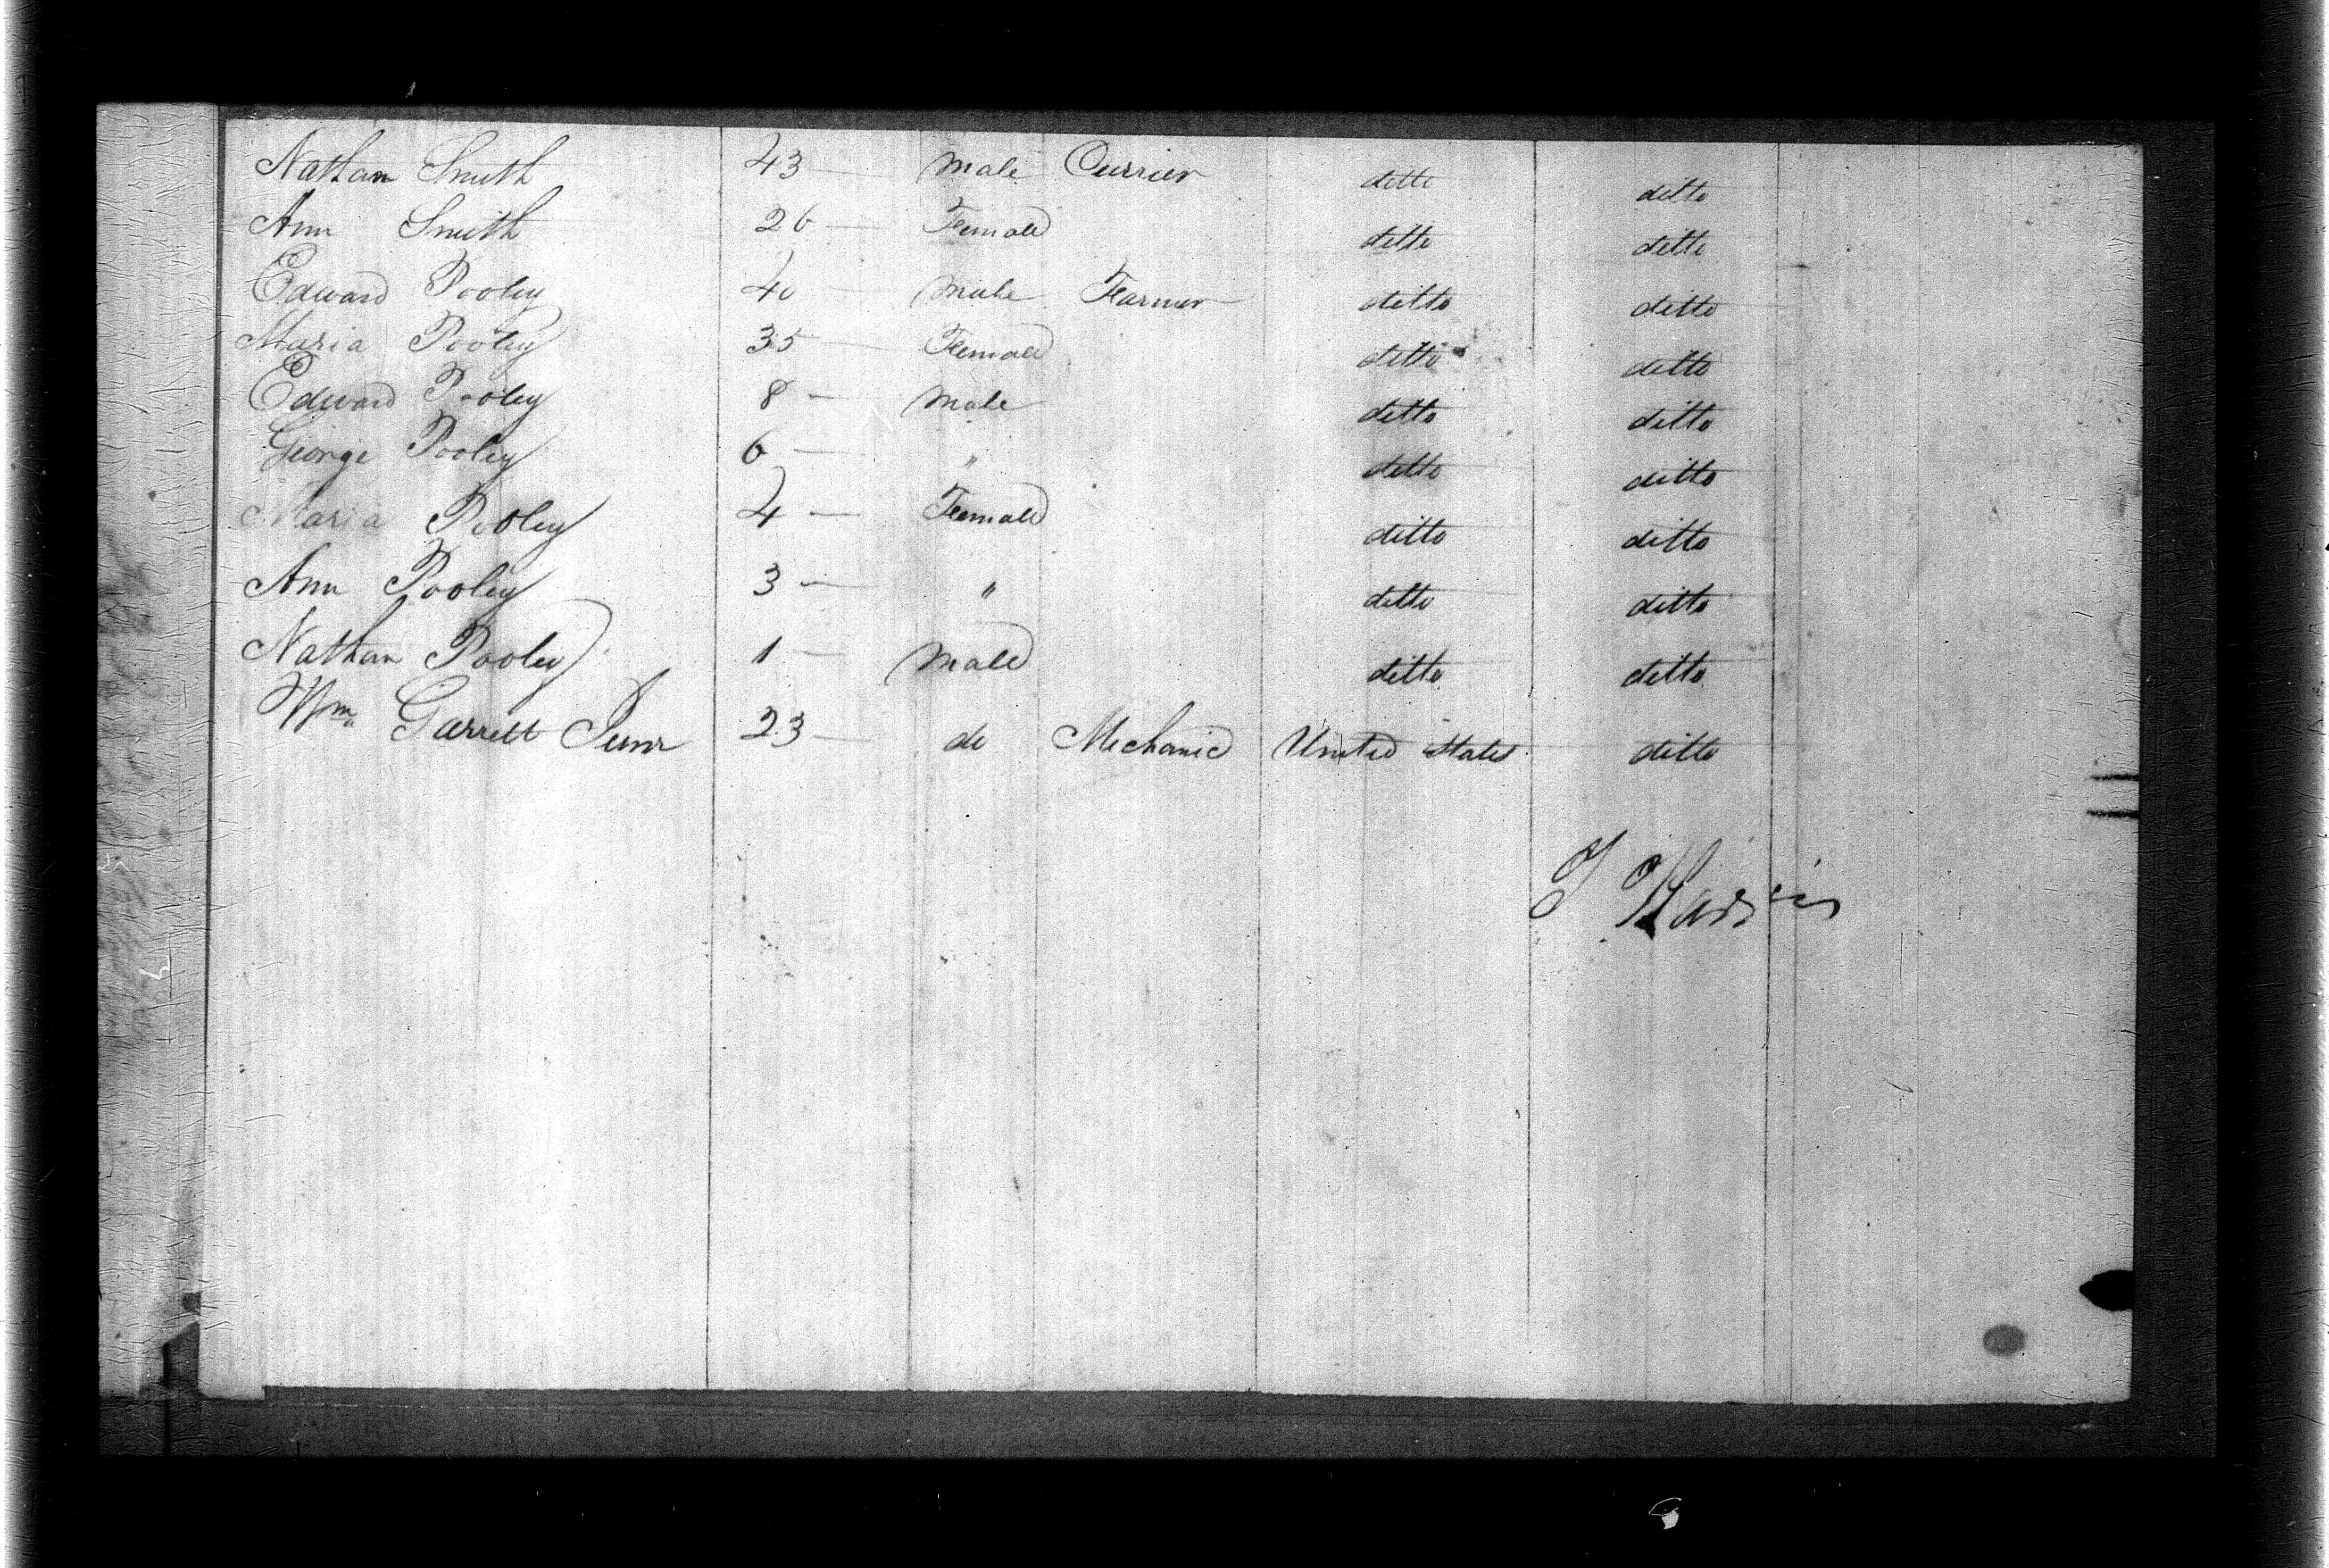 Nathan Smith 43 — male Currier ditto ditto
Ann Smith 26 — Female ditto ditto
Edward Pooley 40 — male Farmer ditto ditto
Maria Pooley 35 — Female ditto ditto
Edward Pooley 8 — male ditto ditto
George Pooley 6 — " ditto ditto
Maria Pooley 4 — Female ditto ditto
Ann Pooley 3 — " ditto ditto
Nathan Pooley 1 — male ditto ditto
Wm Garrett Junr 23 — do Mechanic United States ditto
J Harris